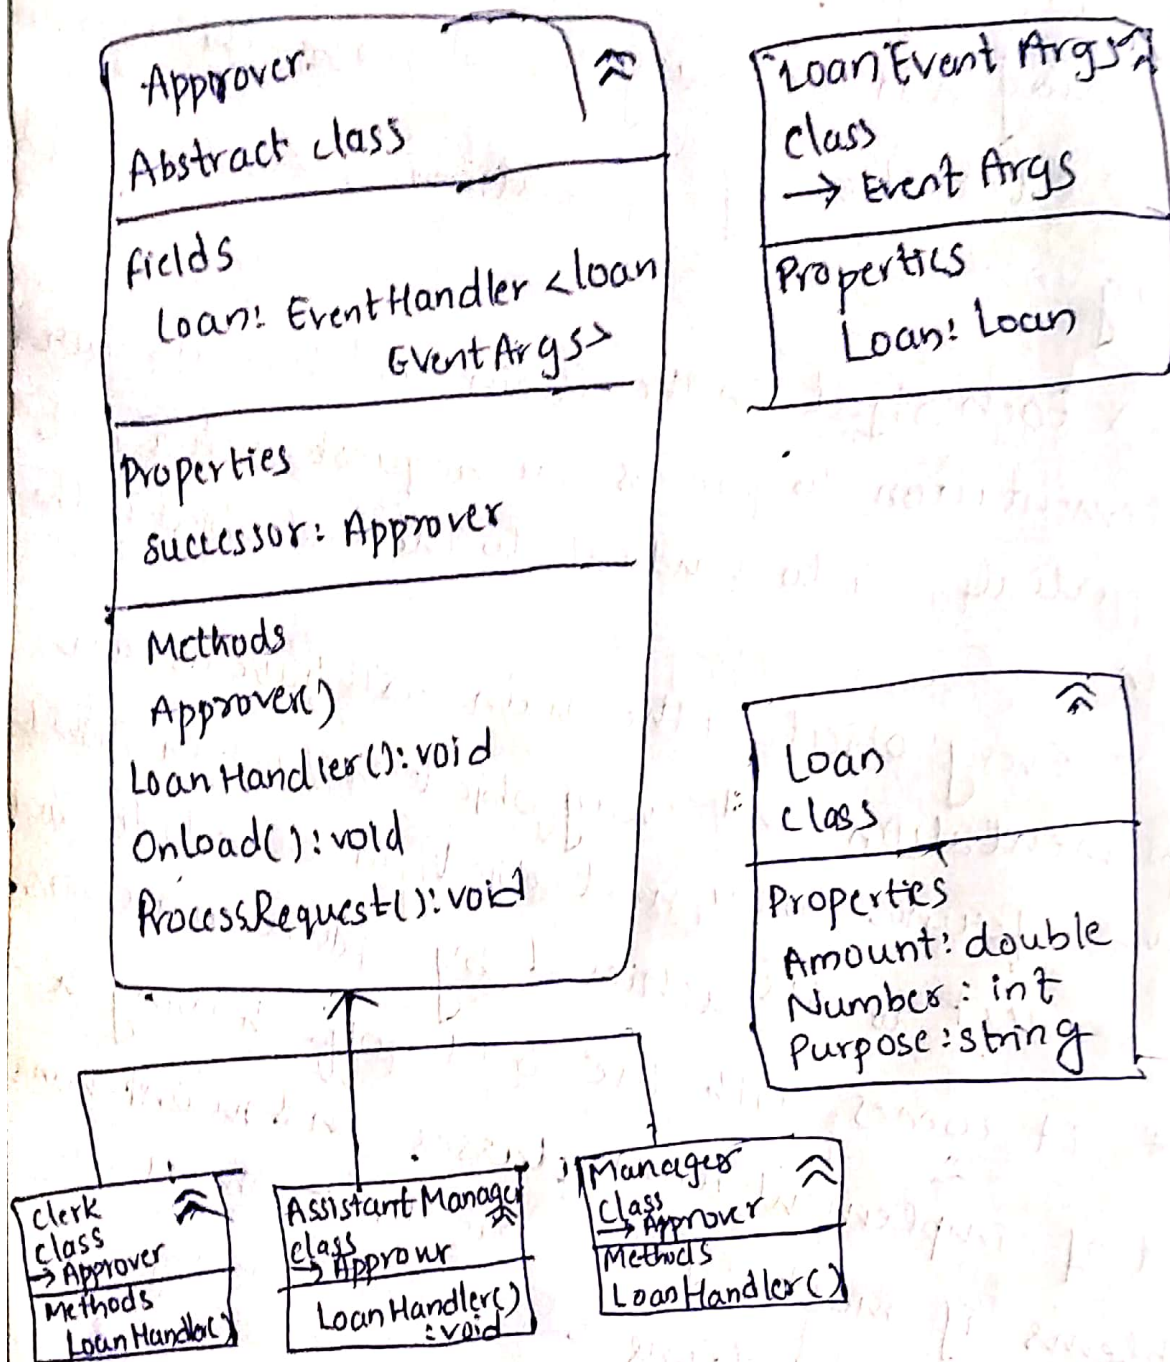 Approver
Abstract class
Fields
Loan: EventHandler <loan
EventArgs>
Properties
successor: Approver
Methods
Approver()
LoanHandler(): void
OnLoad(): void
ProcessRequest(): void
Loan Event Args
class
→ Event Args
Properties
Loan: Loan
Loan
class
Properties
Amount: double
Number: int
Purpose: string
Clerk
class
→ Approver
Methods
LoanHandler()
Assistant Manager
class
→ Approver
LoanHandler()
: void
Manager
Class
→ Approver
Methods
LoanHandler()